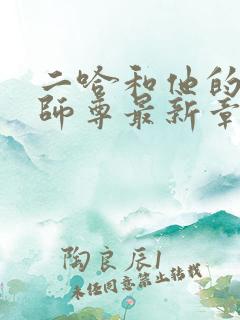 二哈和他的
師尊最新章
陶良辰1
未经同意禁止转载